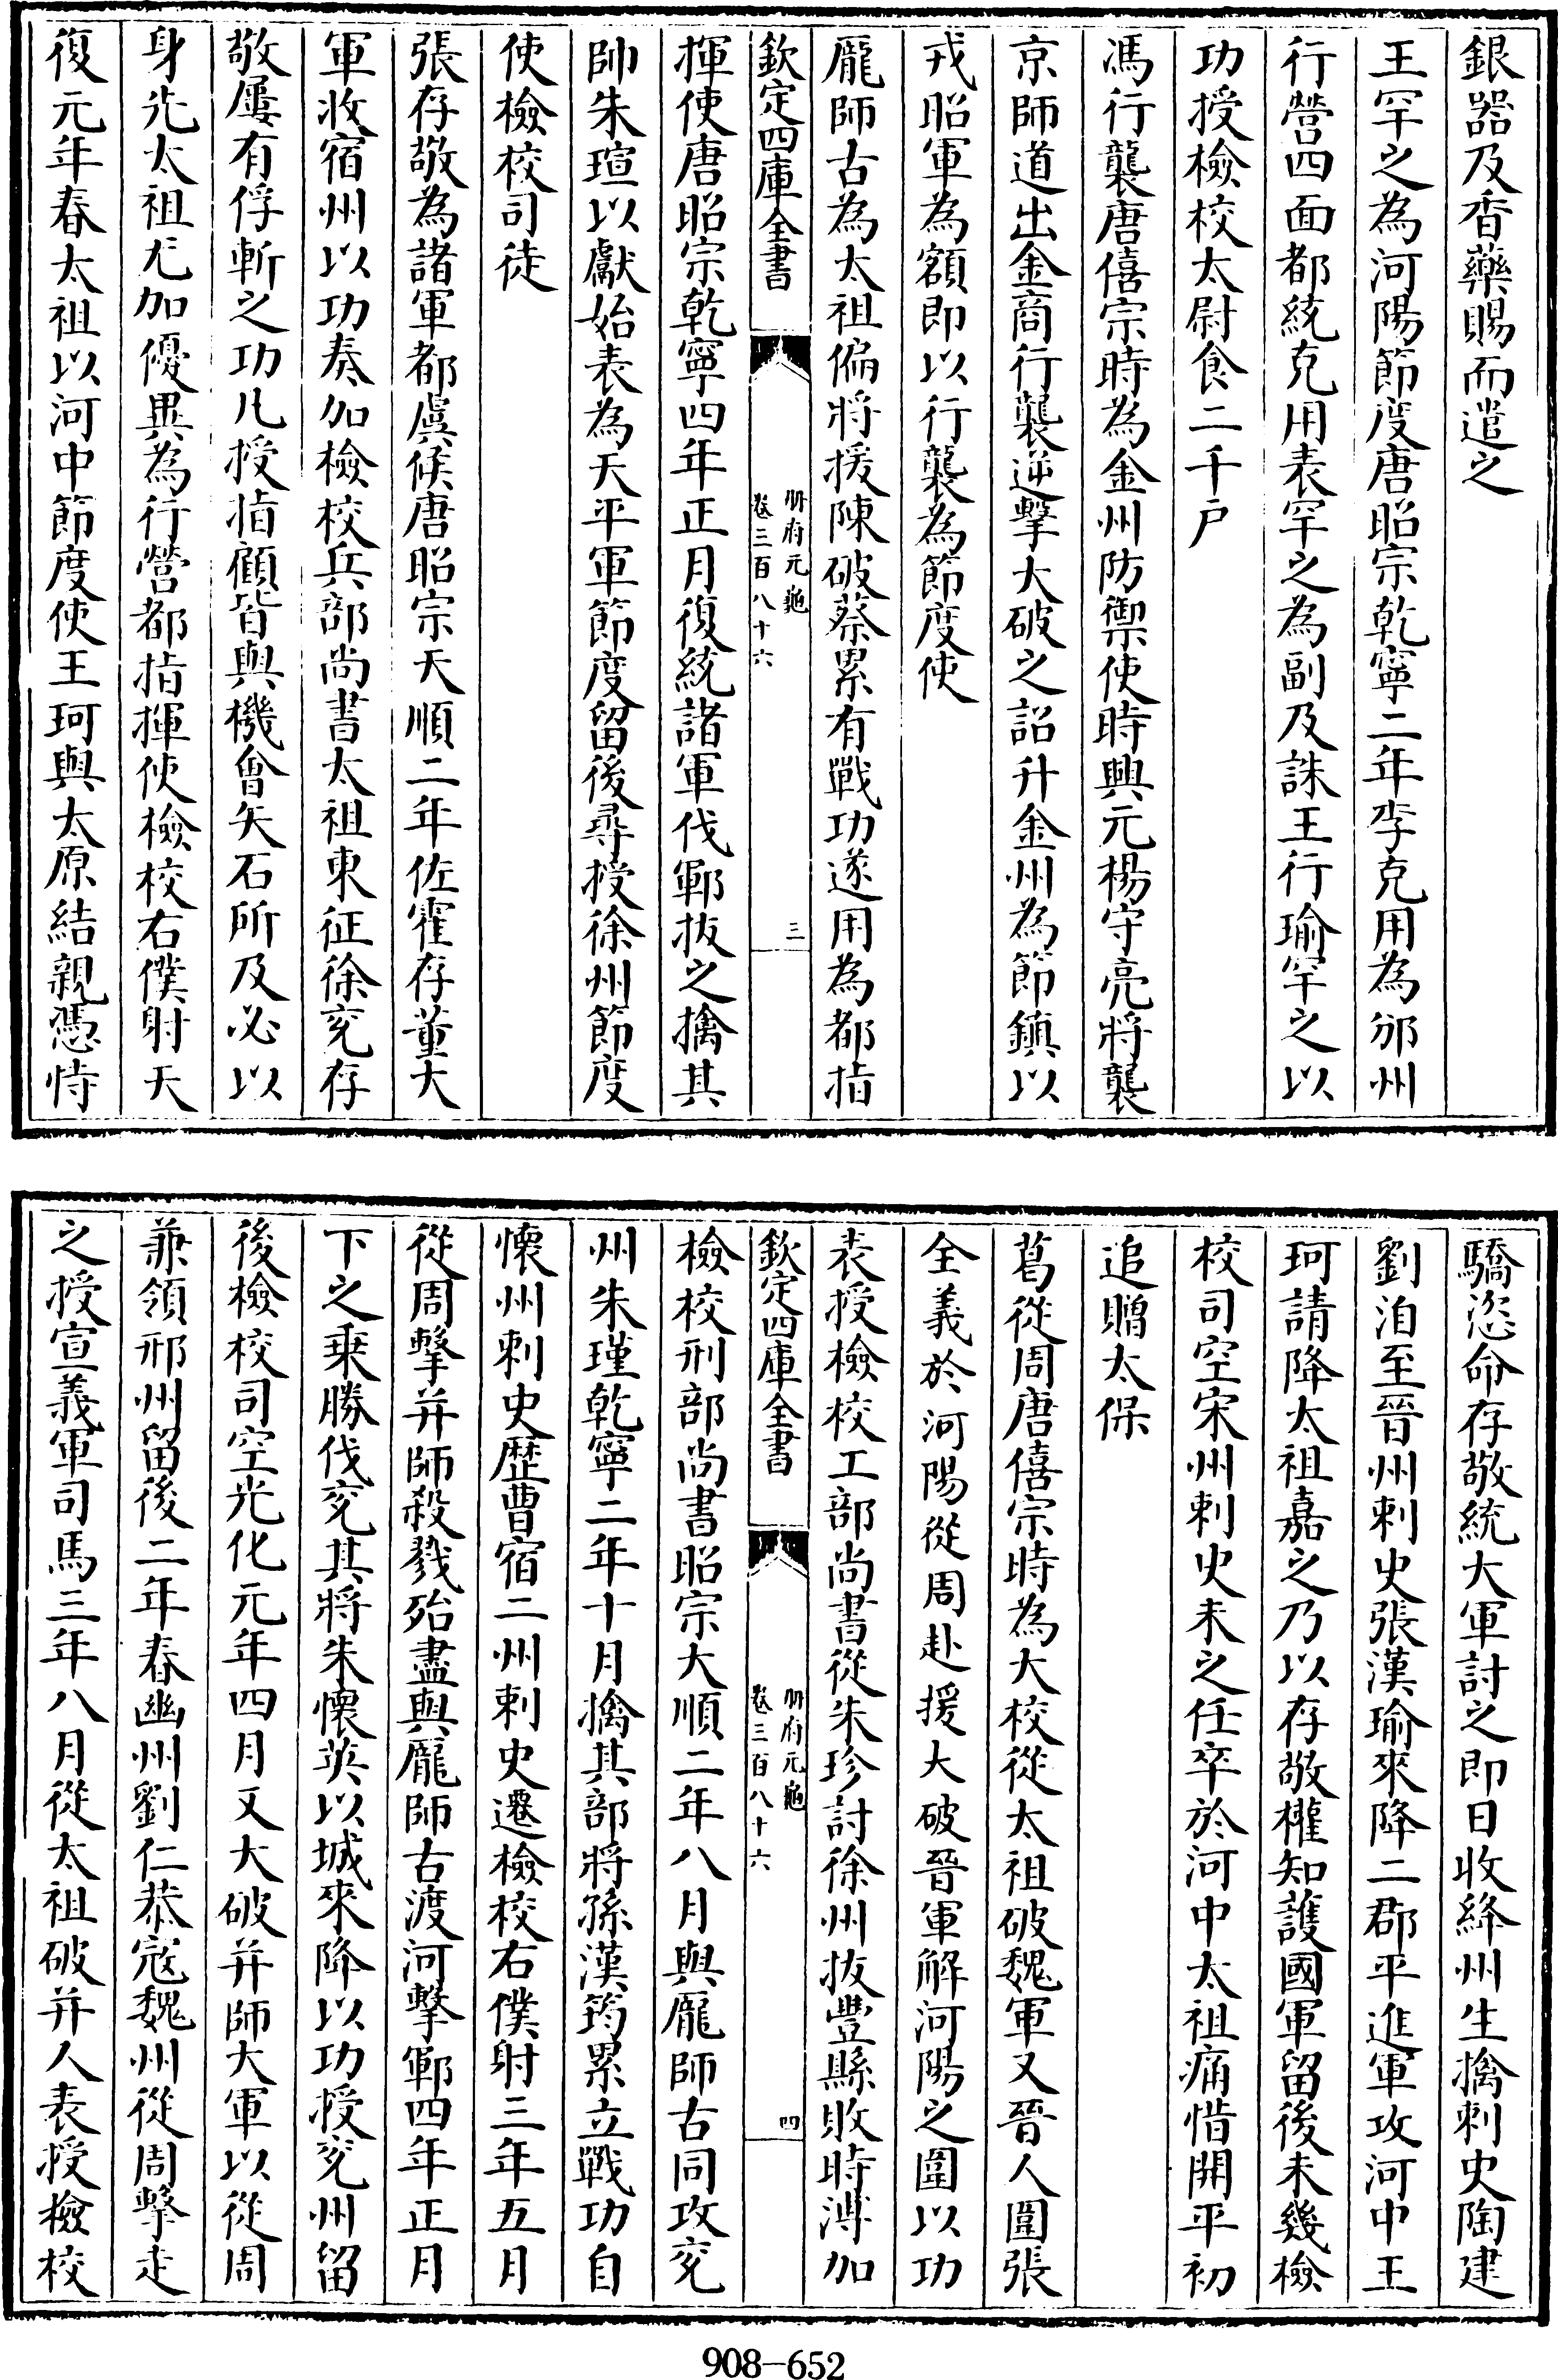 銀器及香藥賜而遣之
王罕之為河陽節度唐昭宗乾寧二年李克用為邠州
行營四面都統克用表罕之為副及誅王行瑜罕之以
功授檢校太尉食二千戸
馮行襲唐僖宗時為金州防禦使時興元楊守亮將襲
京師道出金商行襲逆擊大破之詔升金州為節鎮以
戎昭軍為額即以行襲為節度使
龐師古為太祖偏將援陳破蔡累有戰功遂用為都指
欽定四庫全書
冊府元龜
卷三百八十六
三
揮使唐昭宗乾寧四年正月復統諸軍伐鄆拔之擒其
帥朱瑄以獻始表為天平軍節度留後尋授徐州節度
使檢校司徒
張存敬為諸軍都虞候唐昭宗天順二年佐霍存董大
軍收宿州以功奏加檢校兵部尚書太祖東征徐兖存
敬屢有俘斬之功凡授指顧皆與機會矢石所及必以
身先太祖尤加優異為行營都指揮使檢校右僕射天
復元年春太祖以河中節度使王珂與太原結親憑恃
驕恣命存敬統大軍討之即日收絳州生擒刺史陶建
劉洎至晉州刺史張漢瑜來降二郡平進軍攻河中王
珂請降太祖嘉之乃以存敬權知護國軍留後未幾檢
校司空宋州刺史未之任卒於河中太祖痛惜開平初
追贈太保
葛從周唐僖宗時為大校從太祖破魏軍又晉人圍張
全義於河陽從周赴援大破晉軍解河陽之圍以功
表授檢校工部尚書從朱珍討徐州拔豐縣敗時溥加
欽定四庫全書
冊府元龜
卷三百八十六
四
檢校刑部尚書昭宗大順二年八月與龐師古同攻兖
州朱瑾乾寧二年十月擒其部將孫漢筠累立戰功自
懷州刺史歷曹宿二州刺史遷檢校右僕射三年五月
從周擊并師殺戮殆盡與龐師古渡河擊鄆四年正月
下之乗勝伐兖其將朱懷英以城來降以功授兖州留
後檢校司空光化元年四月又大破并師大軍以從周
兼領邢州留後二年春幽州劉仁恭宼魏州從周擊走
之授宣義軍司馬三年八月從太祖破并人表授檢校
908-652